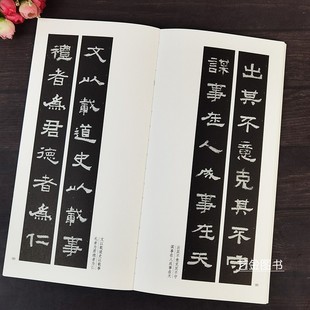 出其不意克其不守
謀事在人成事在天
文以載道史以載事
禮者為君德者為仁